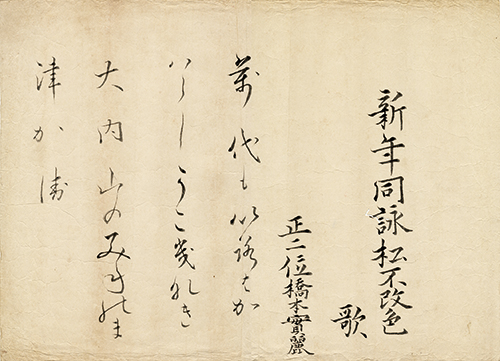 新年同詠松不改色
歌
正二位橋本實麗
萬代も以路はか
ハらしうこ幾那き
大内山のみねのま
津か